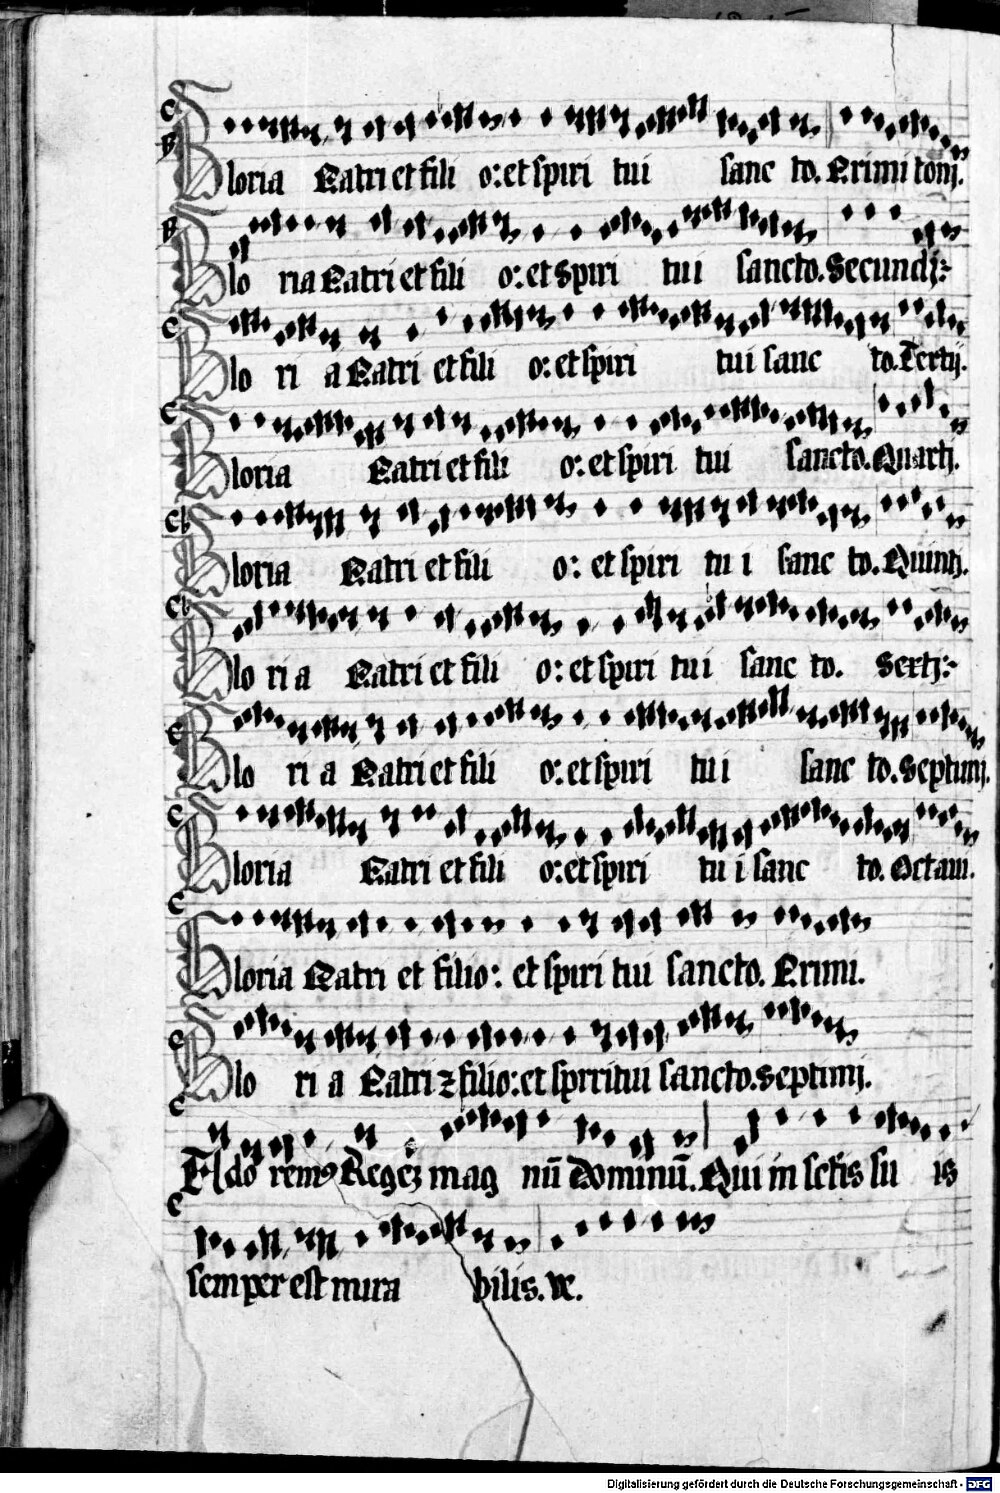 Gloria Patri et fili o: et spiri tui sanc to. Primi tonj.
Glo ria Patri et fili o: et spiri tui sancto. Secundj:
Glo ri a Patri et fili o: et spiri tui sanc to. Tertij.
Gloria Patri et fili o: et spiri tui sancto. Quartj.
Gloria Patri et fili o: et spiri tu i sanc to. Quintj.
Glo ri a Patri et fili o: et spiri tui sanc to. Sextj:
Glo ri a Patri et fili o: et spiri tui sanc to. Septimj.
Gloria Patri et fili o: et spiri tu i sanc to. Octaui.
Gloria Patri et filio: et spiri tui sancto. Primi.
Glo ri a Patri ꝛ filio: et spiritui sancto. Septimj.
Ado remꝰ Regeʒ mag nū Dominū. Qui in sctis su is
semper est mira bilis. ve.
Digitalisierung gefördert durch die Deutsche Forschungsgemeinschaft - DFG